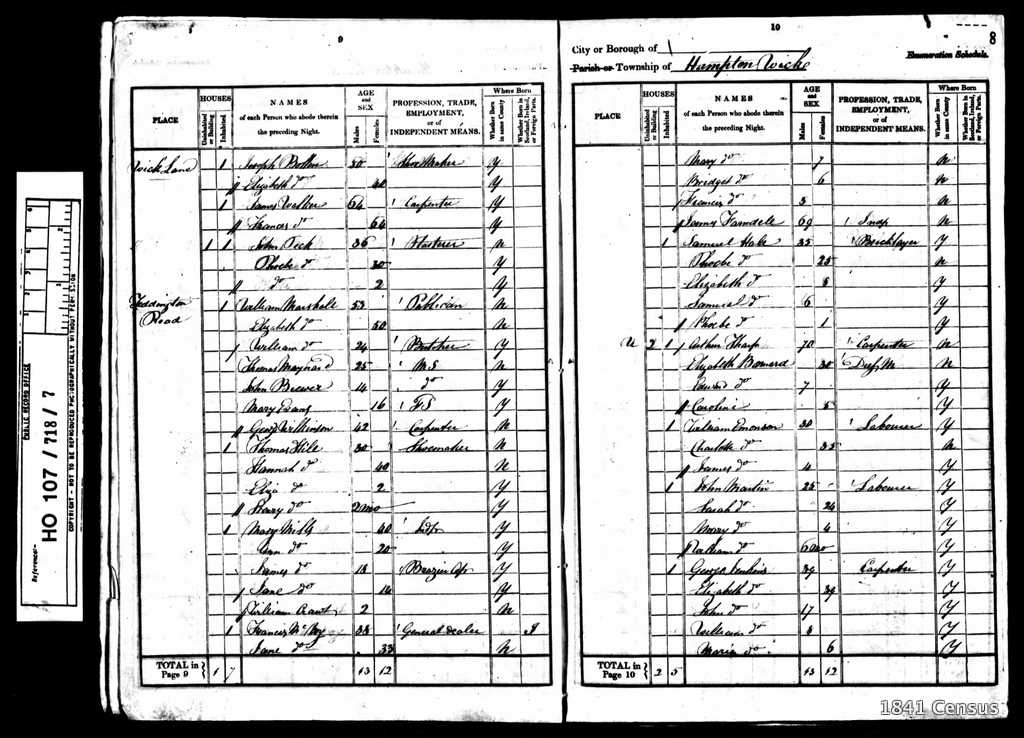 9
WHERE BORN
PLACE HOUSES NAMES AGE and SEX PROFESSION, TRADE, EMPLOYMENT, or of INDEPENDENT MEANS. Where Born
Uninhabited or Building Inhabited of each Person who abode therein the preceding Night. Males Females Whether Born in same County Whether Born in Scotland, Ireland, or Foreign Parts.
Wick Lane 1 Joseph 50 Shoe Maker Y
Elizabeth do 40 Y
1 James Walker 64 Carpenter Y
Frances do 64 Y
1 1 John Peck 36 Plasterer N
Phoebe do 30 Y
do 2 Y
Teddington Road 1 William Marshall 53 Publican N
Elizabeth do 50 N
William do 24 Butcher Y
Thomas Maynard 25 M S N
John Brewer 14 do Y
Mary Evans 16 F S Y
George Wilkinson 42 Carpenter N
1 Thomas Hile 30 Shoemaker N
Hannah do 40 N
Eliza do 2 Y
Henry do 2 mo Y
1 Mary Mills 40 Y
Ann do 20 Y
James do 15 Brazier Y
Jane do 14 Y
William 2 N
1 Francis 35 General dealer I
Jane do 33 N
TOTAL in Page 9 1 7 13 12
10
8
City or Borough of
Parish or Township of Hampton Wick
Enumeration Schedule.
PLACE HOUSES NAMES AGE and SEX PROFESSION, TRADE, EMPLOYMENT, or of INDEPENDENT MEANS. Where Born
Uninhabited or Building Inhabited of each Person who abode therein the preceding Night. Males Females Whether Born in same County Whether Born in Scotland, Ireland, or Foreign Parts.
Mary do 7 N
Bridget do 6 N
Francis do 3 N
James 69 Ind N
1 Samuel Hale 35 Bricklayer Y
Phoebe do 25 N
Elizabeth do 8 Y
Samuel do 6 Y
Phoebe do 1 Y
U 2 1 Arthur Tharp 70 Carpenter N
Elizabeth 30 N
Edward do 7 Y
Caroline 5 Y
1 William Emonson 30 Labourer Y
Charlotte do 35 N
James do 4 Y
1 John Martin 25 Labourer Y
Sarah do 24 Y
do 4 Y
William do 6 mo Y
1 George Jenkins 39 Carpenter Y
Elizabeth do 39 Y
John do 17 Y
William do 8 Y
Maria do 6 Y
TOTAL in Page 10 2 5 13 12
PUBLIC RECORD OFFICE
Reference:-
HO 107 / 718 / 7
COPYRIGHT - NOT TO BE REPRODUCED PHOTOGRAPHICALLY WITHOUT PERMISSION
1841 Census